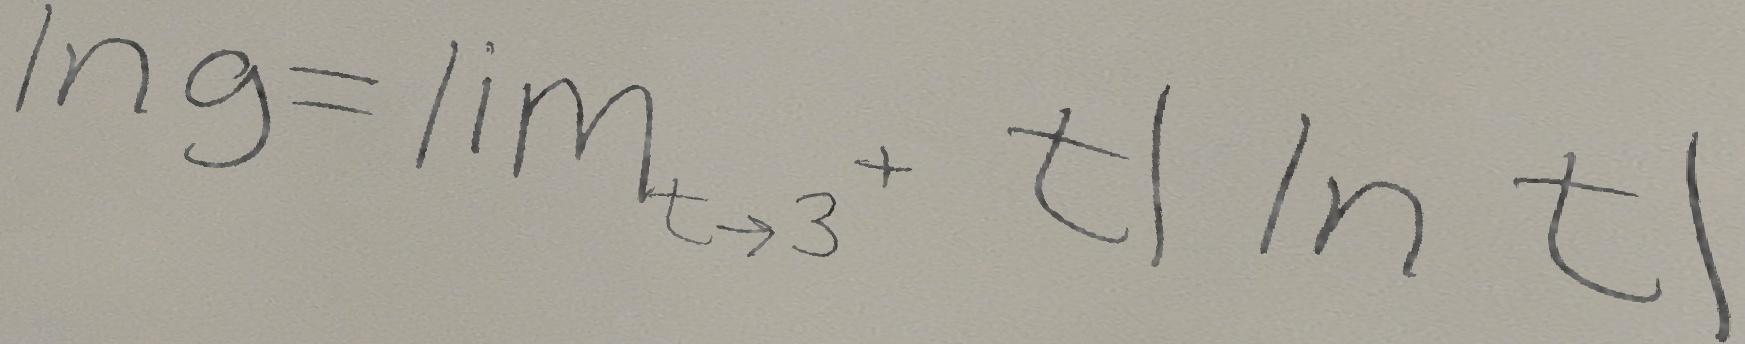 ln g = lim_{t→3^+} t| ln t|